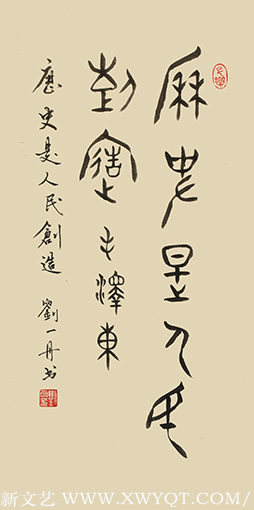 厤史是人民
創造 毛澤東
歷史是人民創造 劉一丹书
新文艺 WWW.XWYQT.COM/